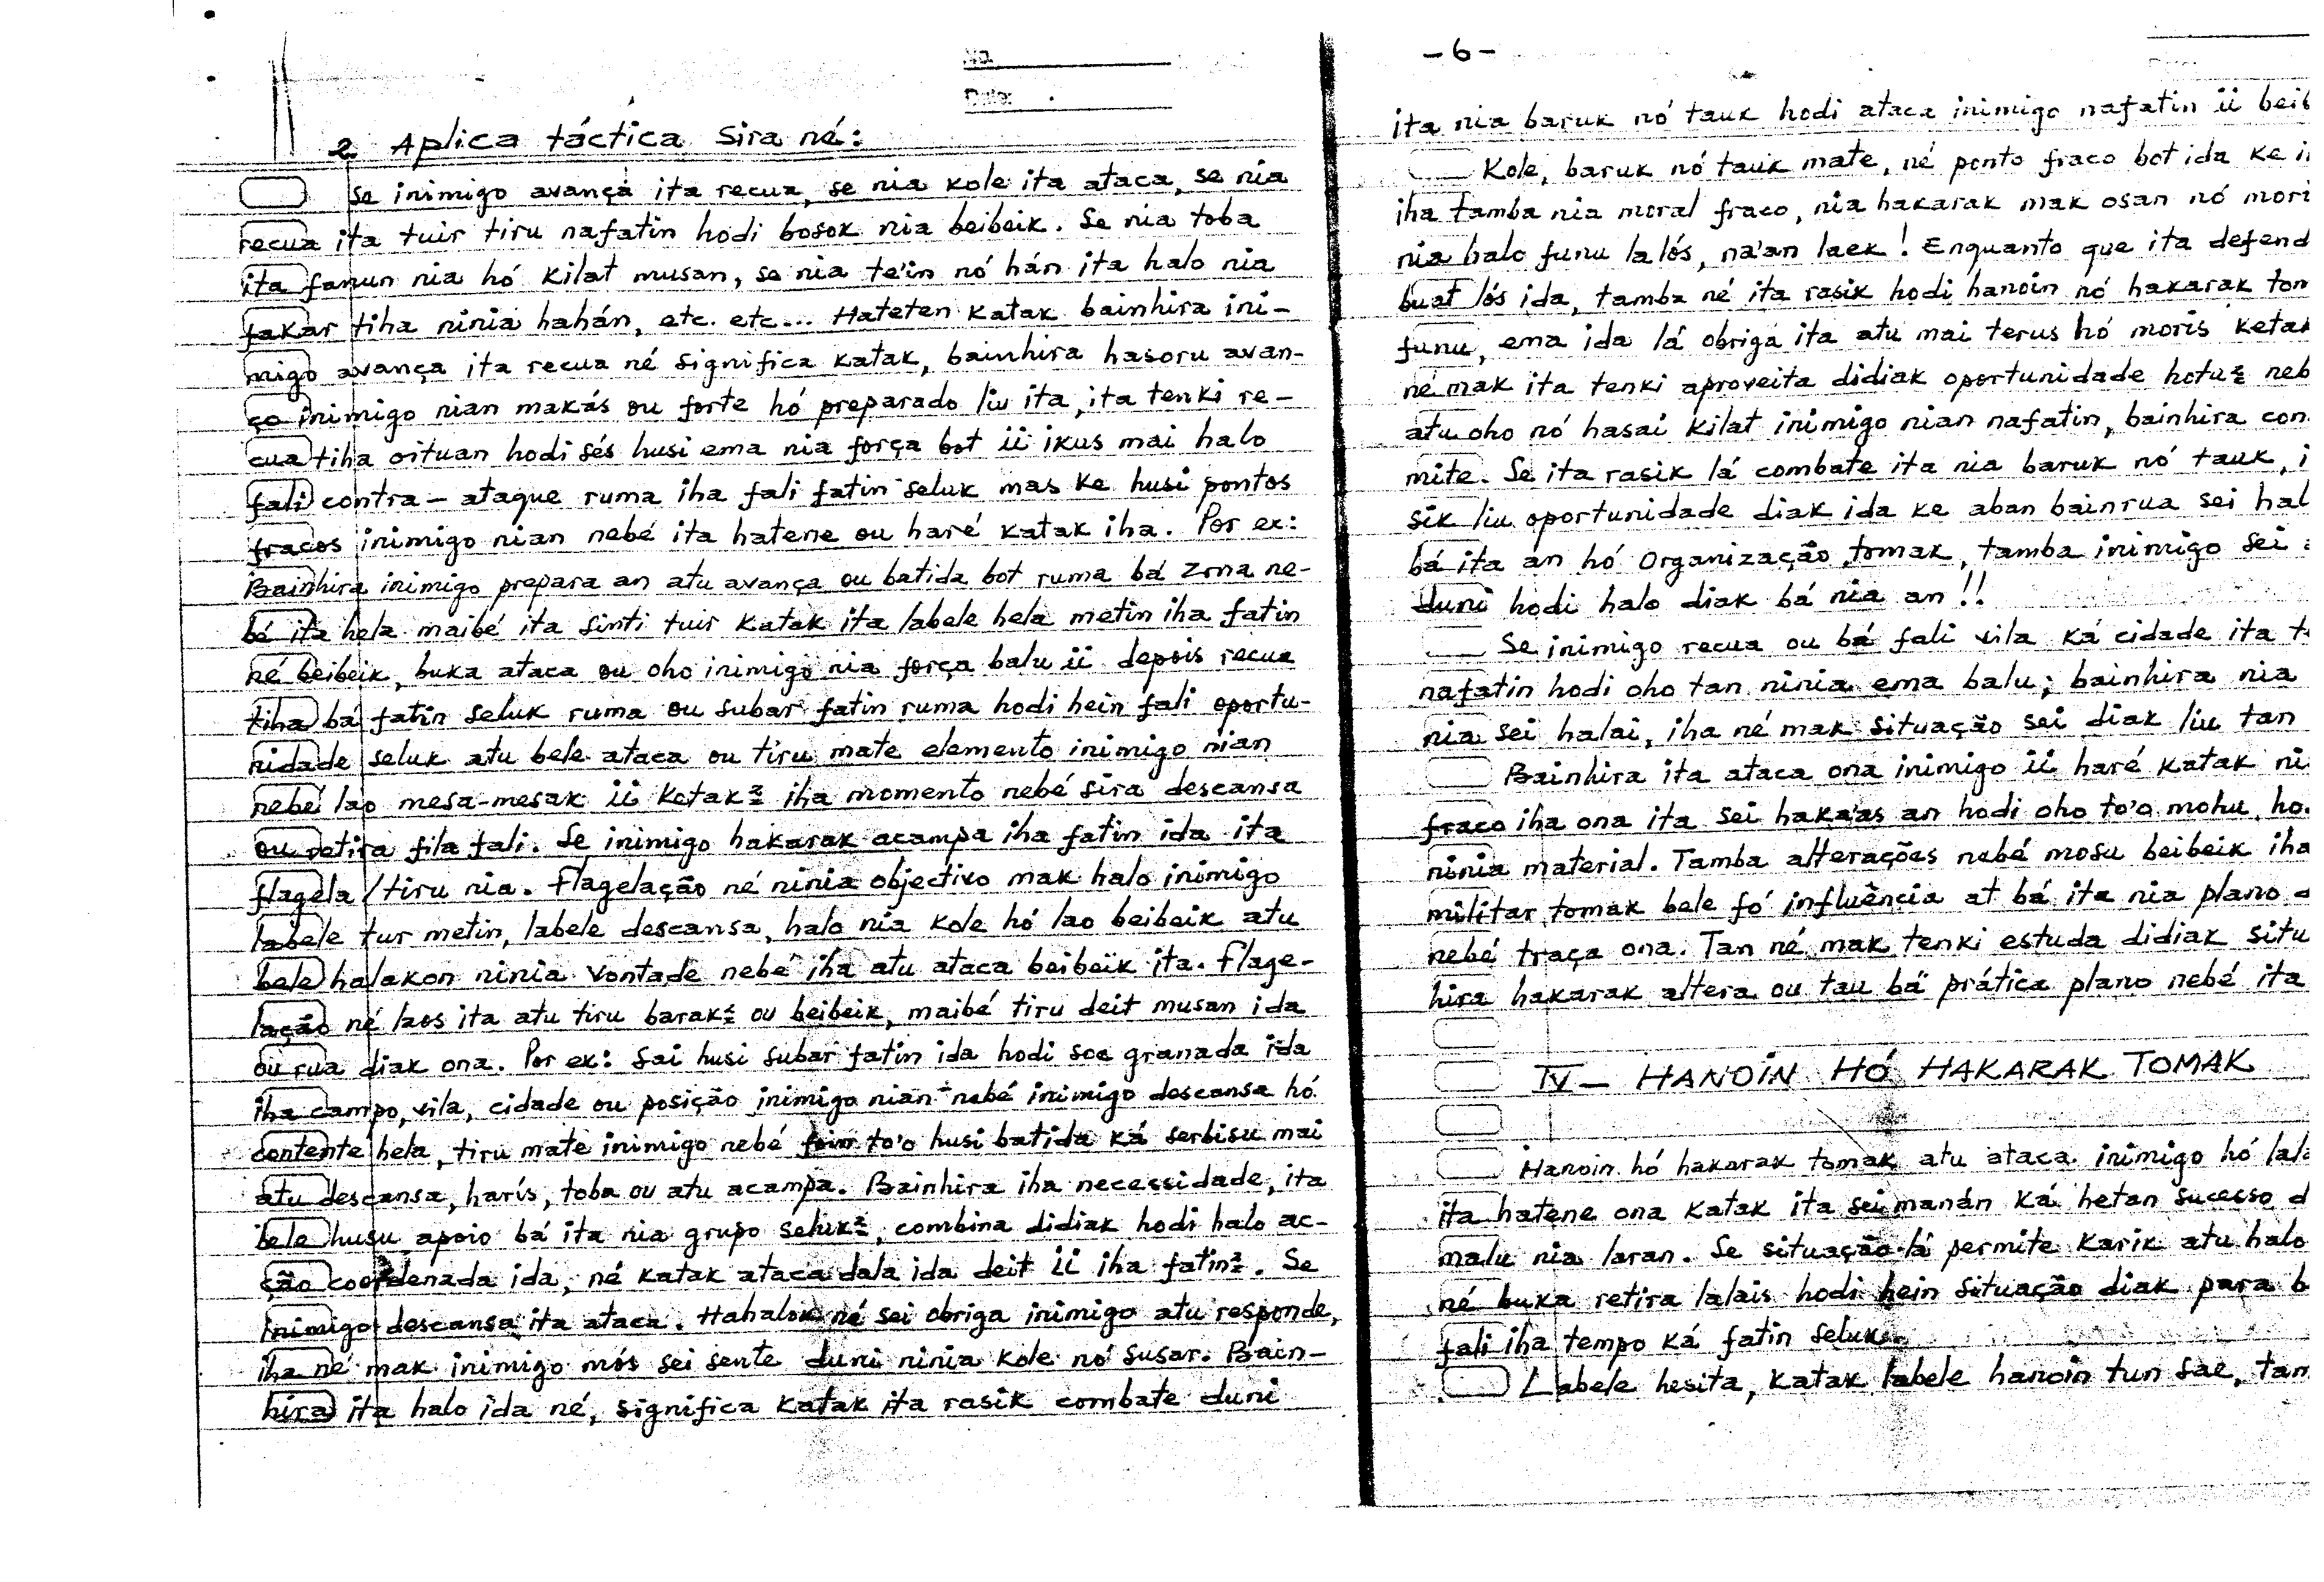 No.
Date:
2. Aplica táctica sira né:
Se inimigo avança ita recua, se nia kole ita ataca, se nia
recua ita tuir tiru nafatin hodi bosok nia beibeik. Se nia toba
ita fanun nia hó kilat musan, se nia te'in nó hán ita halo nia
fakar tiha ninia hahán, etc. etc... Hateten katak bainhira ini-
migo avança ita recua né significa katak, bainhira hasoru avan-
ço inimigo nian makás ou forte hó preparado liu ita, ita tenki re-
cua tiha oituan hodi sés husi ema nia força bot ii ikus mai halo
fali contra-ataque ruma iha fali fatin seluk mas ke husi pontos
fracos inimigo nian nebé ita hatene ou haré katak iha. Por ex:
Bainhira inimigo prepara an atu avança ou batida bot ruma bá zrna ne-
bé ita hela maibé ita sinti tuir katak ita labele hela metin iha fatin
né beibeik, buka ataca ou oho inimigo nia força balu ii depois recua
tiha bá fatin seluk ruma ou subar fatin ruma hodi hein fali oportu-
nidade seluk atu bele ataca ou tiru mate elemento inimigo nian
nebé lao mesa-mesak ii ketak² iha momento nebé sira descansa
ou retira fila fali. Se inimigo hakarak acampa iha fatin ida ita
flagela/tiru nia. Flagelação né ninia objectivo mak halo inimigo
labele tur metin, labele descansa, halo nia kole hó lao beibeik atu
bele halakon ninia vontade nebé iha atu ataca beibeik ita. Flage-
lação né laos ita atu tiru barak² ou beibeik, maibé tiru deit musan ida
ou rua diak ona. Por ex: Sai husi subar fatin ida hodi soe granada ida
iha campo, vila, cidade ou posição inimigo nian nebé inimigo descansa hó
contente hela, tiru mate inimigo nebé foin to'o husi batida ká serbisu mai
atu descansa, harís, toba ou atu acampa. Bainhira iha necessidade, ita
bele husu apoio bá ita nia grupo seluk², combina didiak hodi halo ac-
ção coordenada ida, né katak ataca dala ida deit ii iha fatin². Se
inimigo descansa ita ataca. Hahalok né sei obriga inimigo atu responde,
iha né mak inimigo mós sei sente duni ninia kole nó susar. Bain-
hira ita halo ida né, significa katak ita rasik combate duni
-6-
ita nia baruk nó tauk hodi ataca inimigo nafatin ii beib
Kole, baruk nó tauk mate, né ponto fraco bot ida ke i
iha tamba nia moral fraco, nia hakarak mak osan nó mori
nia halo funu la lós, na'an laek! Enquanto que ita defend
buat lós ida, tamba né ita rasik hodi hanoin nó hakarak tom
funu, ema ida lá obriga ita atu mai terus hó moris ketak
né mak ita tenki aproveita didiak oportunidade hotu² neb
atu oho nó hasai kilat inimigo nian nafatin, bainhira con
mite. Se ita rasik lá combate ita nia baruk nó tauk, i
sik liu oportunidade diak ida ke aban bainrua sei hal
bá ita an hó Organização tomak, tamba inimigo sei a
duni hodi halo diak bá nia an!!
Se inimigo recua ou bá fali vila ká cidade ita t
nafatin hodi oho tan ninia ema balu; bainhira nia
nia sei halai, iha né mak situação sei diak liu tan
Bainhira ita ataca ona inimigo ii haré katak ni
fraco iha ona ita sei haka'as an hodi oho to'o mohu, ho
ninia material. Tamba alterações nebé mosu beibeik iha
militar tomak bele fó influência at bá ita nia plano d
nebé traça ona. Tan né mak tenki estuda didiak situ
hira hakarak altera ou tau bá prática plano nebé ita
IV - HANOIN HÓ HAKARAK TOMAK
Hanoin hó hakarak tomak atu ataca inimigo hó lala
ita hatene ona katak ita sei manán ká hetan sucesso d
malu nia laran. Se situação lá permite karik atu halo
né buka retira lalais hodi hein situação diak para b
fali iha tempo ká fatin seluk.
Labele hesita, katak labele hanoin tun sae, tam